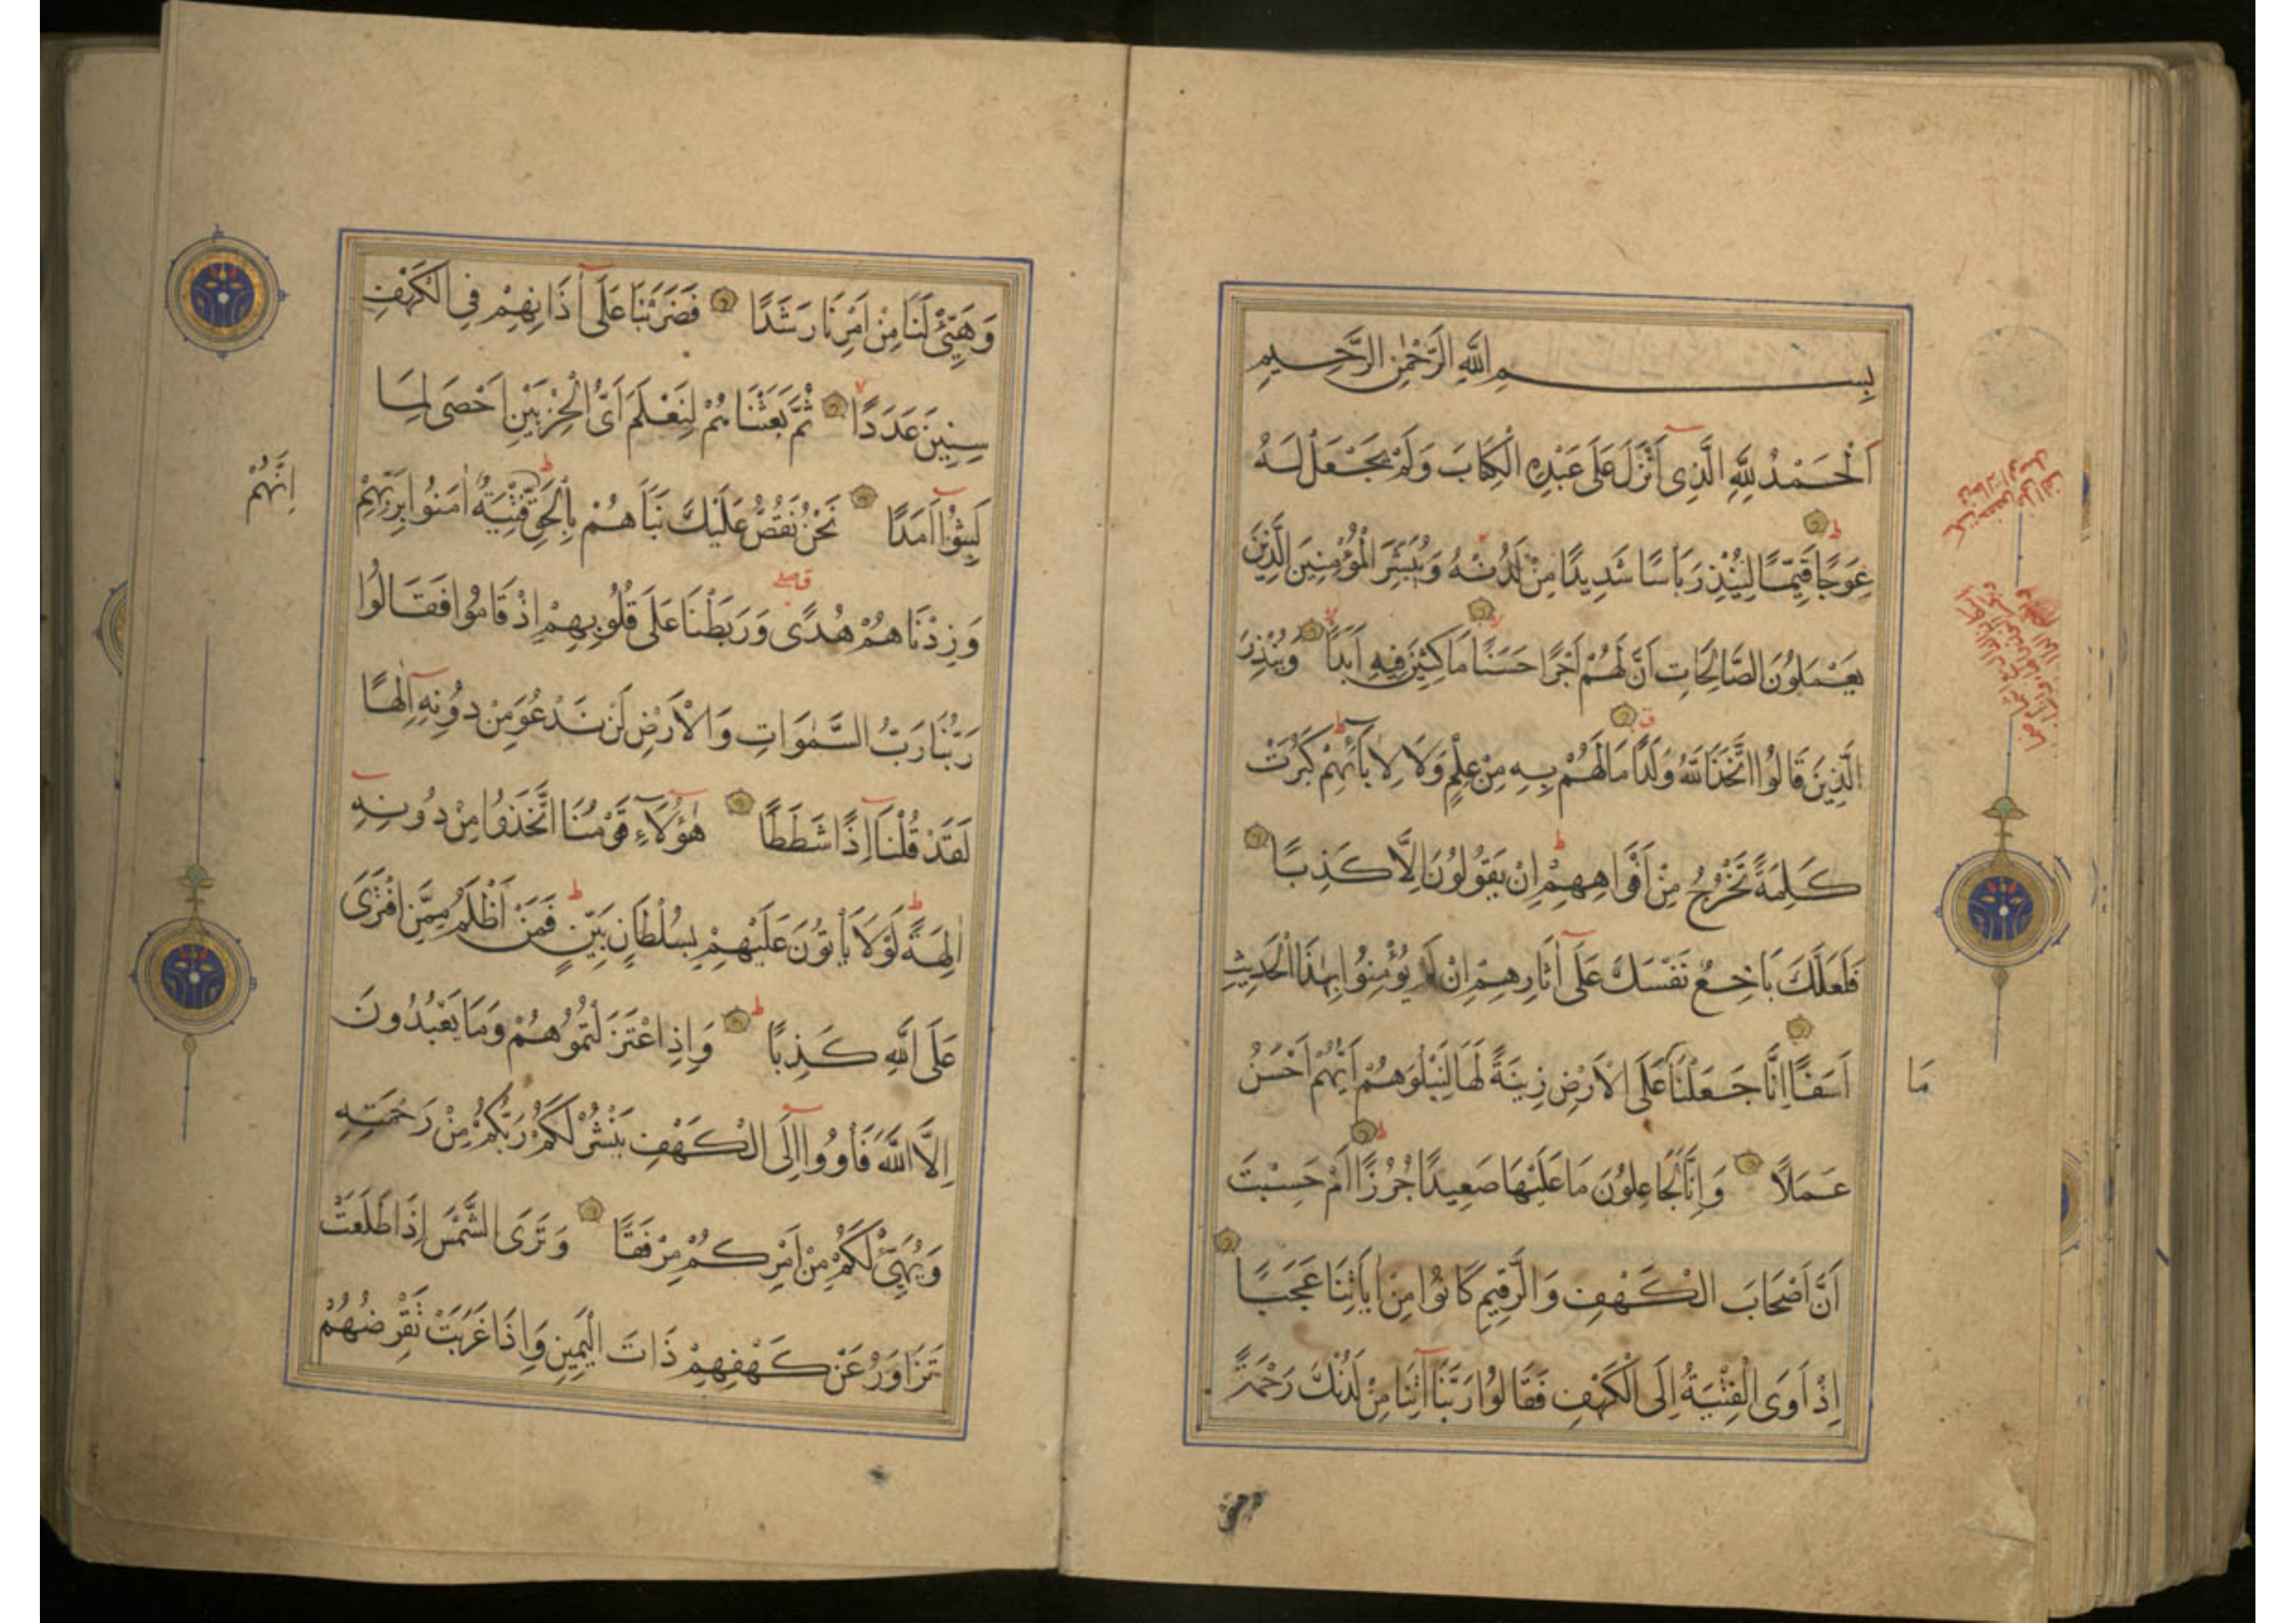 بِسْمِ اللَّهِ الرَّحْمٰنِ الرَّحِيمِ
اَلْحَمْدُ لِلَّهِ الَّذِى اَنْزَلَ عَلَى عَبْدِهِ الْكِتَابَ وَلَمْ يَجْعَلْ لَهُ
عِوَجًا قَيِّمًا لِيُنْذِرَ بَاْسًا شَدِيدًا مِنْ لَدُنْهُ وَيُبَشِّرَ الْمُؤْمِنِينَ الَّذِينَ
يَعْمَلُونَ الصَّالِحَاتِ اَنَّ لَهُمْ اَجْرًا حَسَنًا مَاكِثِينَ فِيهِ اَبَدًا وَيُنْذِرَ
الَّذِينَ قَالُوا اتَّخَذَ اللَّهُ وَلَدًا مَا لَهُمْ بِهِ مِنْ عِلْمٍ وَلَا لِاٰبَائِهِمْ كَبُرَتْ
كَلِمَةً تَخْرُجُ مِنْ اَفْوَاهِهِمْ اِنْ يَقُولُونَ اِلَّا كَذِبًا
فَلَعَلَّكَ بَاخِعٌ نَفْسَكَ عَلَى اٰثَارِهِمْ اِنْ لَمْ يُؤْمِنُوا بِهٰذَا الْحَدِيثِ
اَسَفًا اِنَّا جَعَلْنَا عَلَى الْاَرْضِ زِينَةً لَهَا لِنَبْلُوَهُمْ اَيُّهُمْ اَحْسَنُ
مَا
عَمَلًا وَاِنَّا لَجَاعِلُونَ مَا عَلَيْهَا صَعِيدًا جُرُزًا اَمْ حَسِبْتَ
اَنَّ اَصْحَابَ الْكَهْفِ وَالرَّقِيمِ كَانُوا مِنْ اٰيَاتِنَا عَجَبًا
اِذْ اَوَى الْفِتْيَةُ اِلَى الْكَهْفِ فَقَالُوا رَبَّنَا اٰتِنَا مِنْ لَدُنْكَ رَحْمَةً
وَهَيِّئْ لَنَا مِنْ اَمْرِنَا رَشَدًا فَضَرَبْنَا عَلَى اٰذَانِهِمْ فِى الْكَهْفِ
سِنِينَ عَدَدًا ثُمَّ بَعَثْنَاهُمْ لِنَعْلَمَ اَىُّ الْحِزْبَيْنِ اَحْصَى لِمَا
لَبِثُوا اَمَدًا نَحْنُ نَقُصُّ عَلَيْكَ نَبَاَهُمْ بِالْحَقِّ فِتْيَةٌ اٰمَنُوا بِرَبِّهِمْ
اِنَّهُمْ
وَزِدْنَاهُمْ هُدًى وَرَبَطْنَا عَلَى قُلُوبِهِمْ اِذْ قَامُوا فَقَالُوا
رَبُّنَا رَبُّ السَّمٰوَاتِ وَالْاَرْضِ لَنْ نَدْعُوَ مِنْ دُونِهِ اِلٰهًا
لَقَدْ قُلْنَا اِذًا شَطَطًا هٰؤُلَاءِ قَوْمُنَا اتَّخَذُوا مِنْ دُونِهِ
اٰلِهَةً لَوْلَا يَاْتُونَ عَلَيْهِمْ بِسُلْطَانٍ بَيِّنٍ فَمَنْ اَظْلَمُ مِمَّنِ افْتَرَى
عَلَى اللَّهِ كَذِبًا وَاِذِ اعْتَزَلْتُمُوهُمْ وَمَا يَعْبُدُونَ
اِلَّا اللَّهَ فَاْوُوا اِلَى الْكَهْفِ يَنْشُرْ لَكُمْ رَبُّكُمْ مِنْ رَحْمَتِهِ
وَيُهَيِّئْ لَكُمْ مِنْ اَمْرِكُمْ مِرْفَقًا وَتَرَى الشَّمْسَ اِذَا طَلَعَتْ
تَزَاوَرُ عَنْ كَهْفِهِمْ ذَاتَ الْيَمِينِ وَاِذَا غَرَبَتْ تَقْرِضُهُمْ